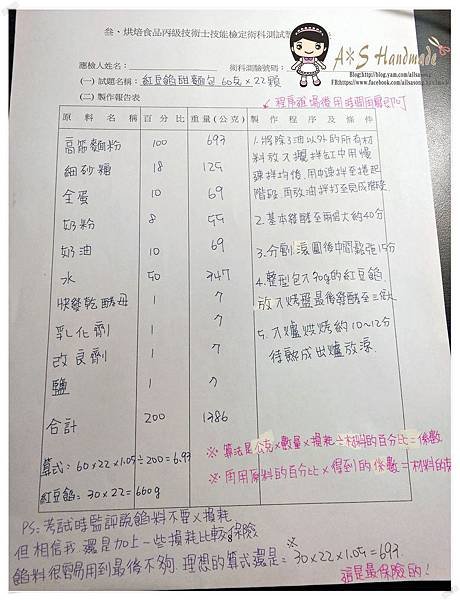 叁、烘焙食品丙級技術士技能檢定術科測試
A*S Handmade
Blog:http://blog.yam.com/allsasong
應檢人姓名：
術科測驗號碼：
(一) 試題名稱：紅豆餡甜麵包 60克×22顆
(二) 製作報告表
程序離場後用時間回寫即可
原料名稱 百分比 重量(公克) 製作程序及條件
高筋麵粉 100 693
細砂糖 18 125
全蛋 10 69
奶粉 8 55
奶油 10 69
水 50 347
快發乾酵母 1 7
乳化劑 1 7
改良劑 1 7
鹽 1 7
合計 200 1386
1.將除了油以外的所有材
料放入攪拌缸中用慢
速拌均傌、用中速拌至捲起
階段,再放油拌打至完成擴展
2.基本發酵至兩倍大約40分
3.分割、滾圓後中間鬆弛15分
4.整型包入30g的紅豆餡
放入烤盤最後發酵至三倍大
5.入爐烘烤約10~12分
待熟成出爐放涼
算式：60×22×1.05÷200=6.93
紅豆餡：30×22=660g
※ 算法是公克×數量×損耗÷材料的百分比=係數
※ 再用原料的百分比×得到的係數=材料的克
PS:考試時監評說餡料不要×損耗
但相信我 還是加上一些損耗比較保險
餡料很容易用到最後不夠.理想的算式還是：※30×22×1.05=693.
這是最保險的！